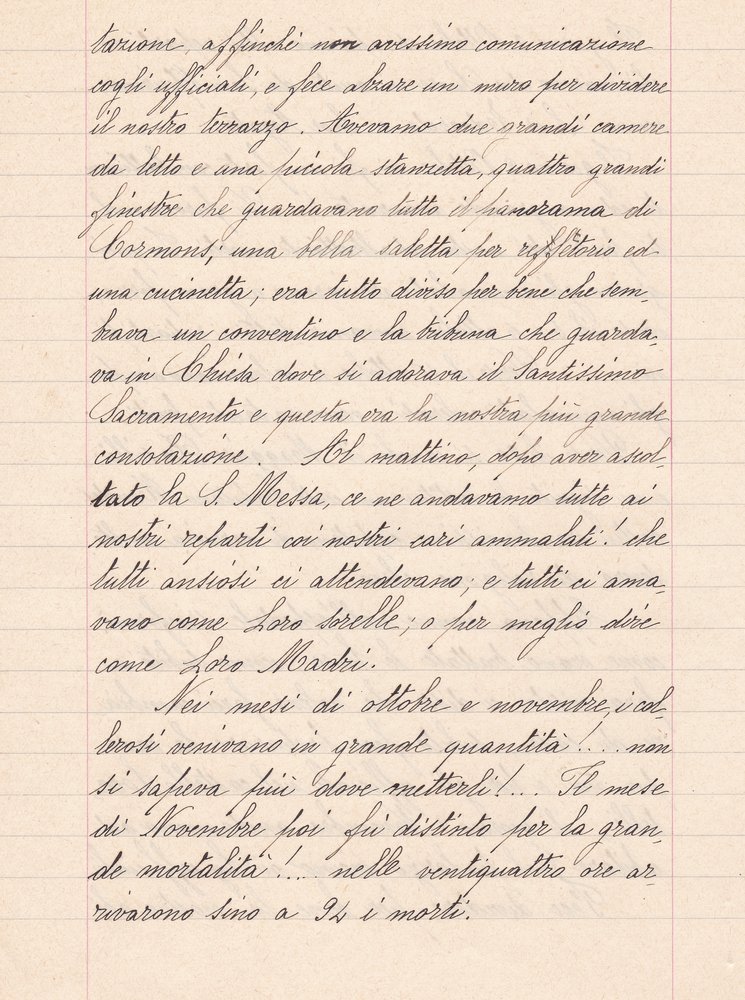 tazione, affinchè non avessimo comunicazione
cogli ufficiali, e fece alzare un muro per dividere
il nostro terrazzo. Avevamo due grandi camere
da letto e una piccola stanzetta, quattro grandi
finestre che guardavano tutto il panorama di
Cormons; una bella saletta per reffetorio ed
una cucinetta; era tutto diviso per bene che sem-
brava un conventino e la tribuna che guarda-
va in Chiesa dove si adorava il Santissimo
Sacramento e questa era la nostra più grande
consolazione. Al mattino, dopo aver ascol-
tato la S. Messa, ce ne andavamo tutte ai
nostri reparti coi nostri cari ammalati! che
tutti ansiosi ci attendevano; e tutti ci ama-
vano come Loro sorelle; o per meglio dire
come Loro Madri.
Nei mesi di ottobre e novembre, i col-
lerosi venivano in grande quantità!.... non
si sapeva più dove metterli!... Il mese
di Novembre poi fù distinto per la gran-
de mortalità!... nelle ventiquattro ore ar-
rivarono sino a 94 i morti.